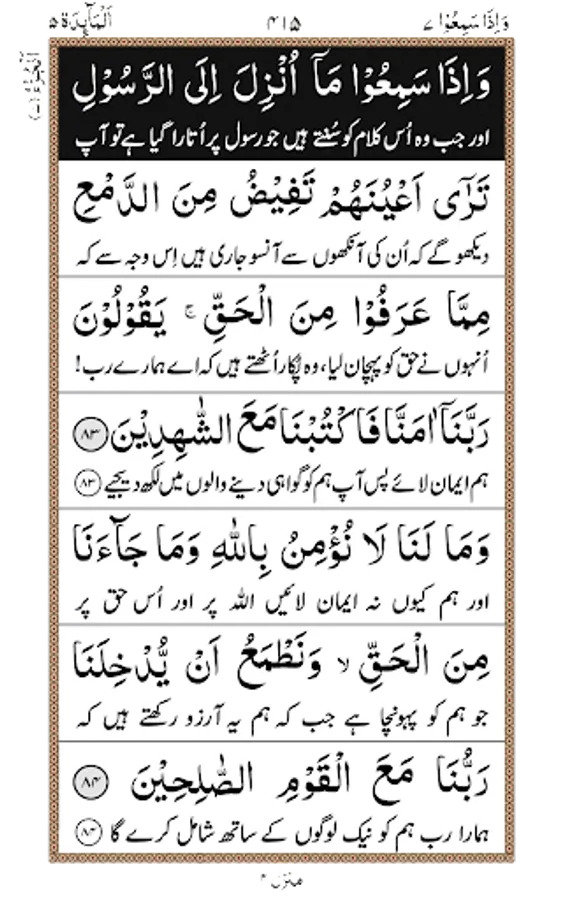 وَاِذَا سَمِعُوْا ٧
٤١٥
اَلْمَآئِدَة ٥
وَاِذَا سَمِعُوْا مَآ اُنْزِلَ اِلَى الرَّسُوْلِ
اور جب وہ اُس کلام کو سُنتے ہیں جو رسول پر اُتارا گیا ہے تو آپ
تَرٰٓى اَعْيُنَهُمْ تَفِيْضُ مِنَ الدَّمْعِ
دیکھو گے کہ اُن کی آنکھوں سے آنسو جاری ہیں اِس وجہ سے کہ
مِمَّا عَرَفُوْا مِنَ الْحَقِّ ۚ يَقُوْلُوْنَ
اُنہوں نے حق کو پہچان لیا، وہ پُکار اُٹھتے ہیں کہ اے ہمارے رب!
رَبَّنَآ اٰمَنَّا فَاكْتُبْنَا مَعَ الشّٰهِدِيْنَ ٨٣
ہم ایمان لائے پس آپ ہم کو گواہی دینے والوں میں لکھ دیجیے ٨٣
وَمَا لَنَا لَا نُؤْمِنُ بِاللّٰهِ وَمَا جَآءَنَا
اور ہم کیوں نہ ایمان لائیں اللہ پر اور اُس حق پر
مِنَ الْحَقِّ ۙ وَنَطْمَعُ اَنْ يُّدْخِلَنَا
جو ہم کو پہونچا ہے جب کہ ہم یہ آرزو رکھتے ہیں کہ
رَبُّنَا مَعَ الْقَوْمِ الصّٰلِحِيْنَ ٨٤
ہمارا رب ہم کو نیک لوگوں کے ساتھ شامل کرے گا ٨٤
منزل ٢